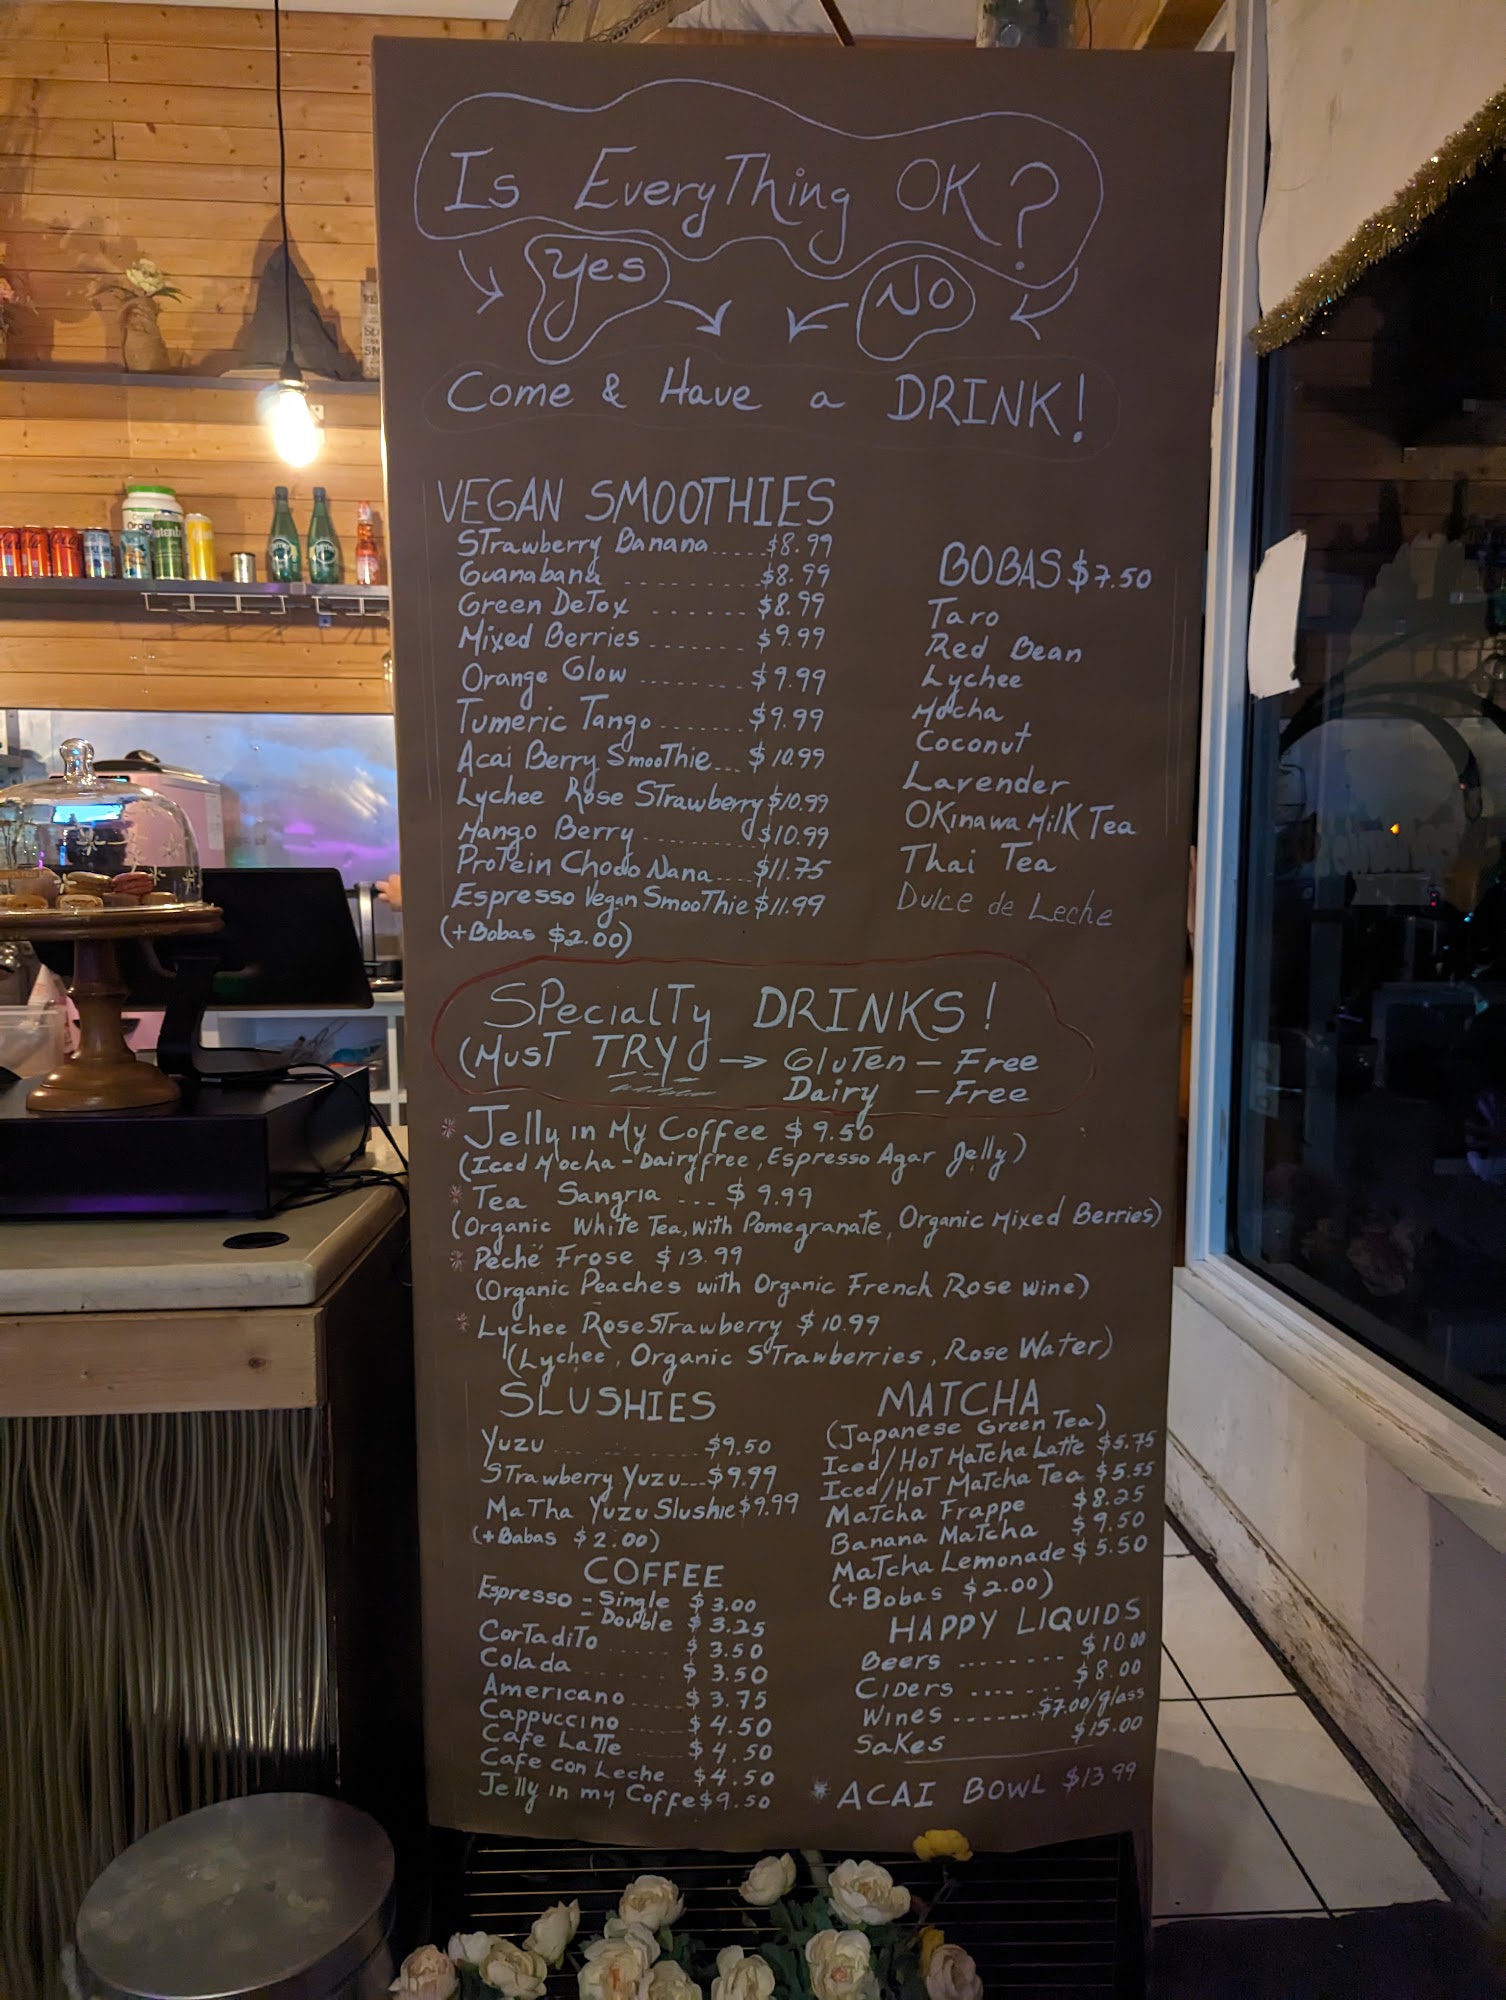 Is EveryThing OK?
Yes
No
Come & Have a DRINK!
VEGAN SMOOTHIES
STrawberry Banana.....$8.99
Guanabana .......... $8.99
Green DeTox ....... $8.99
Mixed Berries ....... $9.99
Orange Glow ........ $9.99
Tumeric Tango ...... $9.99
Acai Berry SmooThie... $10.99
Lychee Rose STrawberry $10.99
Mango Berry ........ $10.99
ProTein Choco Nana.... $11.75
Espresso Vegan SmooThie $11.99
(+Bobas $2.00)
BOBAS $7.50
Taro
Red Bean
Lychee
Mocha
Coconut
Lavender
OKinawa MilK Tea
Thai Tea
Dulce de Leche
SPecialTy DRINKS!
(MusT TRY) → GluTen - Free
Dairy - Free
* Jelly in My Coffee $9.50
(Iced Mocha - Dairyfree, Espresso Agar Jelly)
* Tea Sangria ... $9.99
(Organic White Tea, with Pomegranate, Organic Mixed Berries)
* Peché Frose $13.99
(Organic Peaches with Organic French Rose wine)
* Lychee Rose STrawberry $10.99
(Lychee, Organic STrawberries, Rose Water)
SLUSHIES
Yuzu ............ $9.50
STrawberry Yuzu... $9.99
MaTha Yuzu Slushie $9.99
(+Babas $2.00)
COFFEE
Espresso - Single $3.00
- Double $3.25
CorTadiTo ....... $3.50
Colada ....... $3.50
Americano ..... $3.75
Cappuccino ..... $4.50
Cafe LaTTe ..... $4.50
Cafe con Leche $4.50
Jelly in my Coffe $9.50
MATCHA
(Japanese Green Tea)
Iced/HoT MaTcha LaTTe $5.75
Iced/HoT MaTcha Tea $5.55
MaTcha Frappe $8.25
Banana MaTcha $9.50
MaTcha Lemonade $5.50
(+Bobas $2.00)
HAPPY LIQUIDS
Beers ........ $10.00
CIDers ....... $8.00
Wines ....... $7.00/glass
SaKes $15.00
* ACAI BOWL $13.99